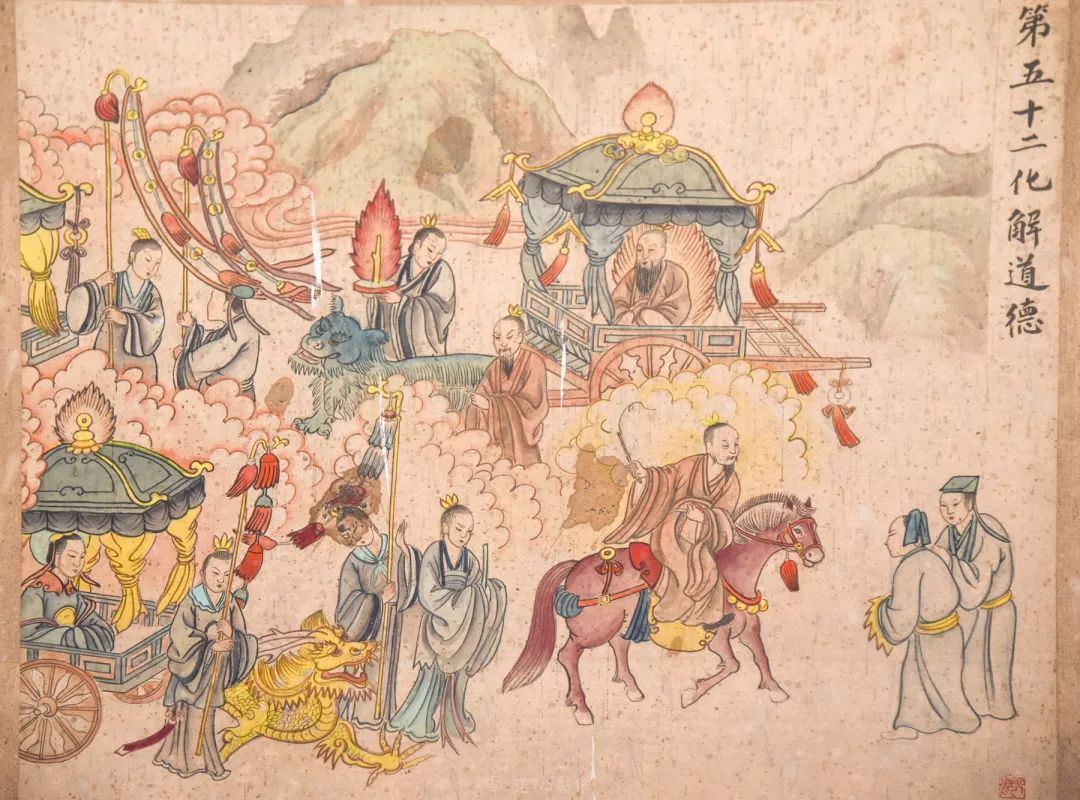 第五十二化解道德